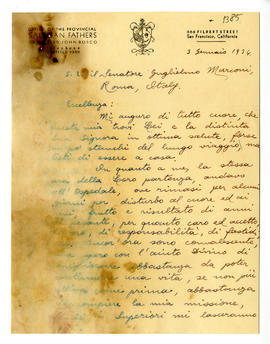 + 1385.
OFFICE OF THE PROVINCIAL
SALESIAN FATHERS
DON BOSCO
666 FILBERT STREET
San Francisco, California
3 Gennaio 1934
S. E. il Senatore Guglielmo Marconi,
Roma, Italy.
Eccellenza:
Mi auguro di tutto cuore, che
questa mia trovi Lei e la distinta
Signora in ottima salute, forse
un po' stanchi del lungo viaggio, ma
lieti di essere a casa.
In quanto a me, la stessa
sera della loro partenza andavo
all'Ospedale, ove rimasi per alcuni
giorni per disturbo al cuore ed ai
frutto e risultato di anni
per quanto caro ed accetto,
di responsabilità, di fastidi,
ancor ora sono convalescente,
spero con l'aiuto Divino di
abbastanza da poter
una vita, se non più
come prima, abbastanza
compiere la mia missione,
Superiori mi lasceranno